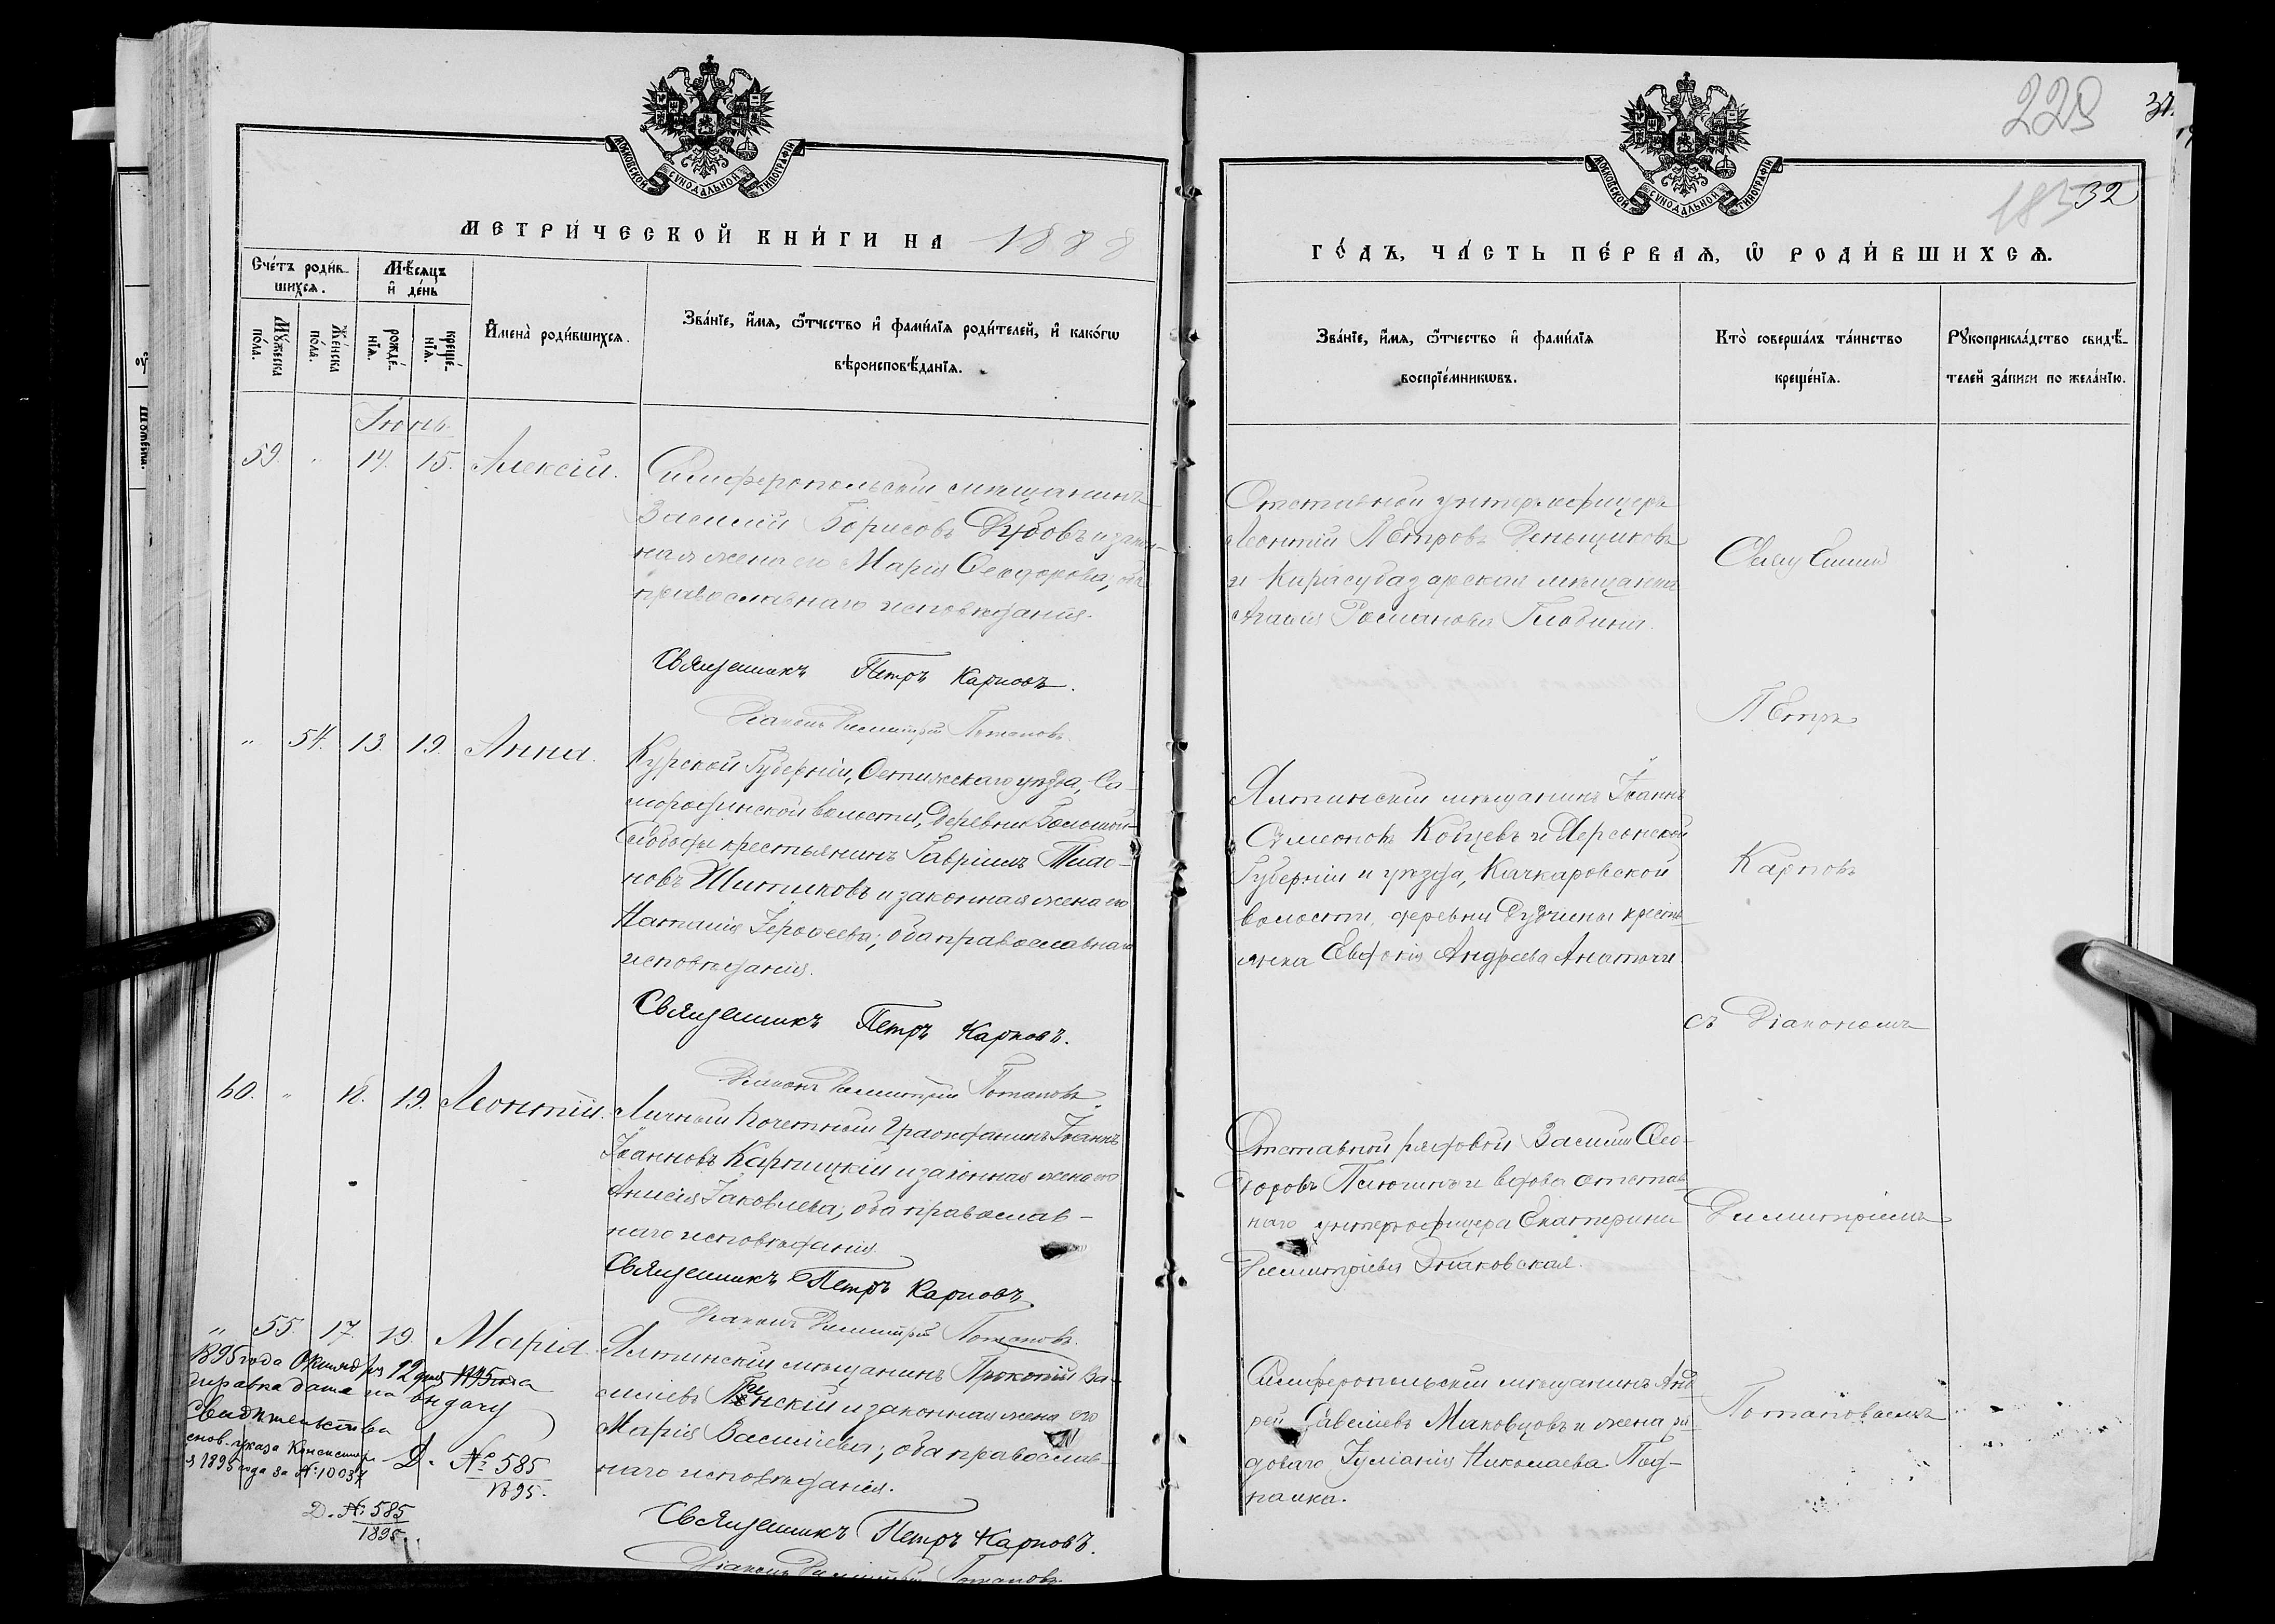 МОСКОВСКОЙ СѴНОДАЛЬНОЙ ТИПОГРАФІИ
МЕТРИ́ЧЕСКОЙ КНИ́ГИ НА 1888
Сче́тъ роди́в-
шихсѧ.
Мѣ́сѧцъ
и҆ де́нь
Мꙋ́жеска
по́ла.
Же́нска
по́ла.
рожде́-
нїѧ.
креще́-
нїѧ.
И҆мена̀ роди́вшихсѧ.
Зва́нїе, и҆́мѧ, ѻ҆́тчество и҆ фами́лїѧ роди́телей, и҆ како́гѡ
вѣроисповѣ́данїѧ.
Іюнь
59. " 14. 15. Алексій.
Симферопольскій мѣщанинъ
Василій Борисовъ Дубовъ и закон-
ная жена его Марія Ѳеодорова, оба
православнаго исповѣданія.
Священникъ Петръ Карповъ.
Діаконъ Димитрій Потаповъ.
" 54. 13. 19. Анна.
Курской Губерніи, уѣзда, Са-
волости, деревни
Слободы крестьянинъ Гавріилъ
новъ Шитиковъ и законная жена его
Наталія оба православнаго
исповѣданія.
Священникъ Петръ Карповъ.
Діаконъ Димитрій Потаповъ.
60. " 18. 19. Леонтій.
Личный Почетный Гражданинъ Іоаннъ
Іоанновъ Карпицкій и законная жена его
Анисія Іаковлева, оба православ-
наго исповѣданія.
Священникъ Петръ Карповъ.
Діаконъ Димитрій Потаповъ.
" 55. 17. 19. Марія.
Ялтинскій мѣщанинъ Прокопій Ва-
силіевъ и законная жена его
Марія Василіева, оба православ-
наго исповѣданія.
Священникъ Петръ Карповъ.
Діаконъ Димитрій Потаповъ.
1895 года Октября 12 дня
справка дана на выдачу
Свидѣтельства
указа Консисторіи
1895 года за № 10037
Д. № 585
1895.
Д. № 585
1895.
229
31.
183
32
МОСКОВСКОЙ СѴНОДАЛЬНОЙ ТИПОГРАФІИ
ГО́ДЪ, ЧА́СТЬ ПЕ́РВАѦ, Ѡ҆ РОДИ́ВШИХСѦ.
Зва́нїе, и҆́мѧ, ѻ҆́тчество и҆ фами́лїѧ
воспрїе́мникѡвъ.
Кто̀ соверша́лъ та́инство
креще́нїѧ.
Рꙋкоприкла́дство свидѣ́-
телей за́писи по жела́нїю.
Отставной унтеръ-офицеръ
Леонтій Петровъ Деньщиковъ
и Карасубазарская мѣщанка
Агаѳія Романова
Ялтинскій мѣщанинъ Іоаннъ
Сѵмеоновъ Кобцевъ и Херсонской
Губерніи и уѣзда, Качкаровской
волости, деревни Дудчины кресть-
янка Евдокія Андреева
Отставной рядовой Василій Ѳео-
доровъ и вдова отстав-
наго унтеръ-офицера Екатерина
Димитріева
Симферопольскій мѣщанинъ Анд-
рей Савеліевъ Маковцовъ и жена ря-
доваго Іуліанія Николаева Под-
палка.
Священникъ
Петръ
Карповъ
съ Діакономъ
Димитріемъ
Потаповымъ